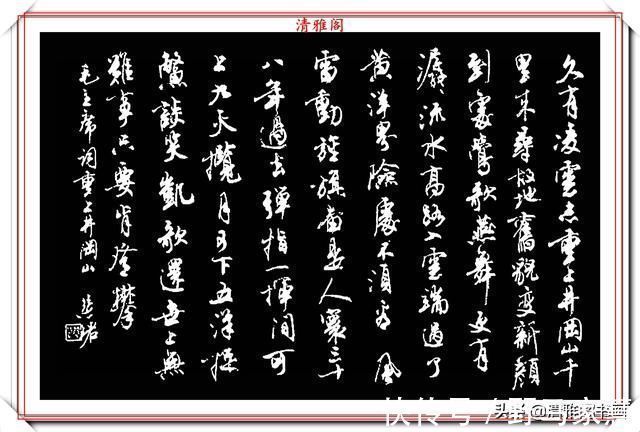 清雅阁
久有凌雲志重上井岡山千
里来尋故地舊貌變新顔
到處鶯歌燕舞更有
潺流水高路入雲端過了
黄洋界險處不須看風
雷動旌旗奮是人寰三十
八年過去彈指一揮間可
上九天攬月可下五洋捉
鱉談笑凱歌還世上無
難事只要肯登攀
毛主席词重上井岡山
快传号 / 野马家